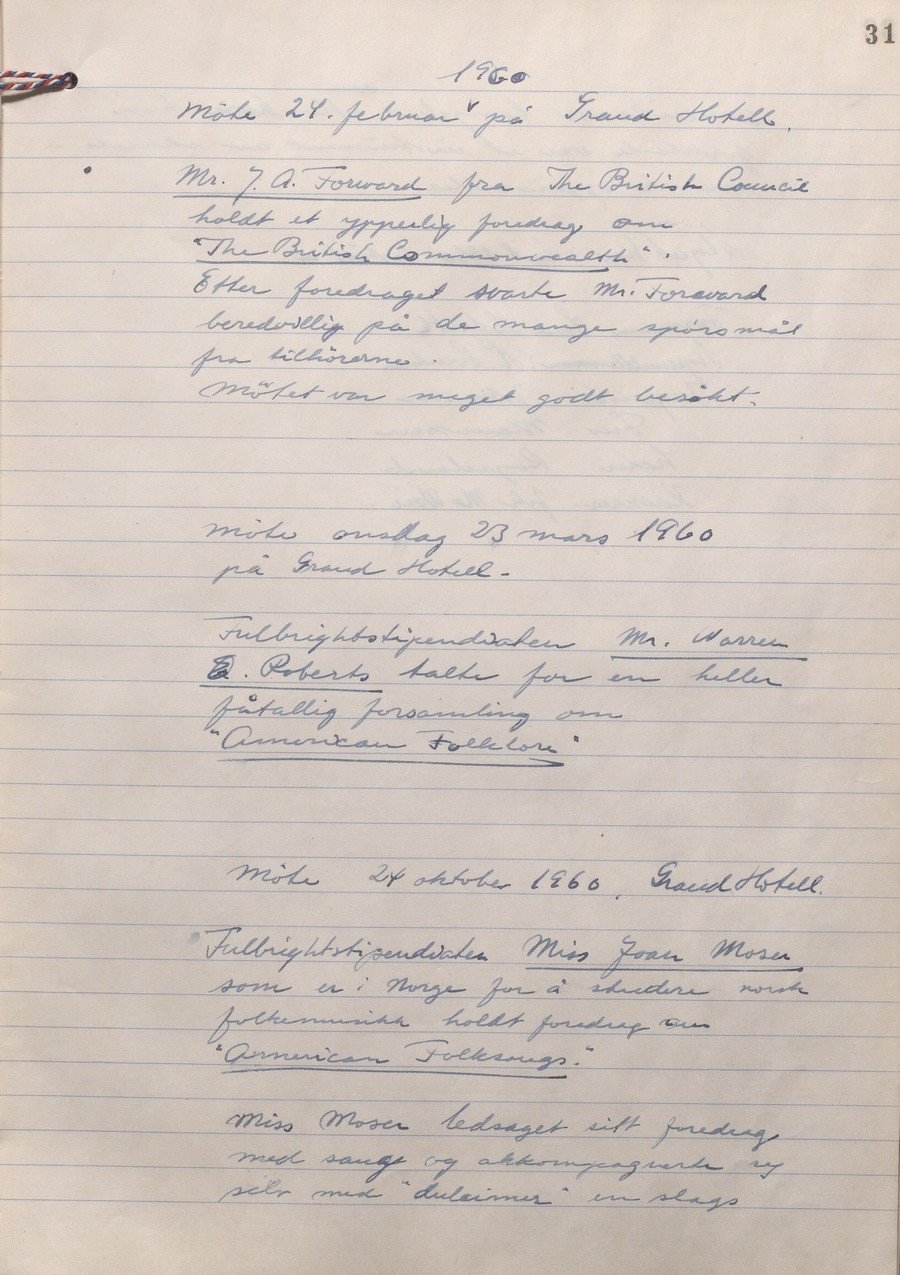 31
1960
Möte 24. februar ᵛ på Grand Hotell.
Mr. J. A. Forward fra The British Council
holdt et ypperlig foredrag om
"The British Commonwealth".
Etter foredraget svarte Mr. Forward
beredvillig på de mange spörsmål
fra tilhörerne.
Mötet var meget godt besökt.
Möte onsdag 23 mars 1960
på Grand Hotell.
Fulbrightstipendiaten Mr. Warren
E. Roberts talte for en heller
fåtallig forsamling om
"American Folklore"
Möte 24 oktober 1960, Grand Hotell.
Fulbrightstipendiaten Miss Joan Moser
som er i Norge for å studere norsk
folkemusikk holdt foredrag om
"American Folksongs."
Miss Moser ledsaget sitt foredrag
med sang og akkompagnerte seg
selv med "dulcimer" en slags